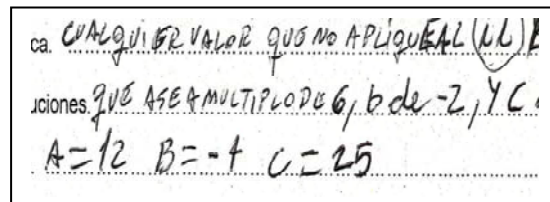 ca. CUALQUIER VALOR QUE NO APLIQUE AL
uciones. QUE A SEA MULTIPLO DE 6, b de -2, Y C
A=12 B=-4 C=25